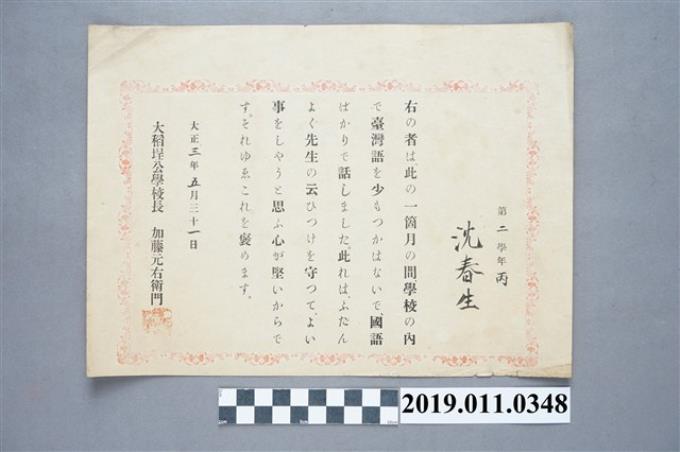 第二學年丙
沈春生
右の者は、此の一箇月の間、學校の內
で臺灣語を少もつかはないで、國語
ばかりで話しました。此れは、ふだん
よく先生の云ひつけを守つて、よい
事をしやうと思ふ心が堅いからで
す。それゆゑこれを褒めます。
大正三年五月三十一日
大稻埕公學校長 加藤元右衛門
2019.011.0348